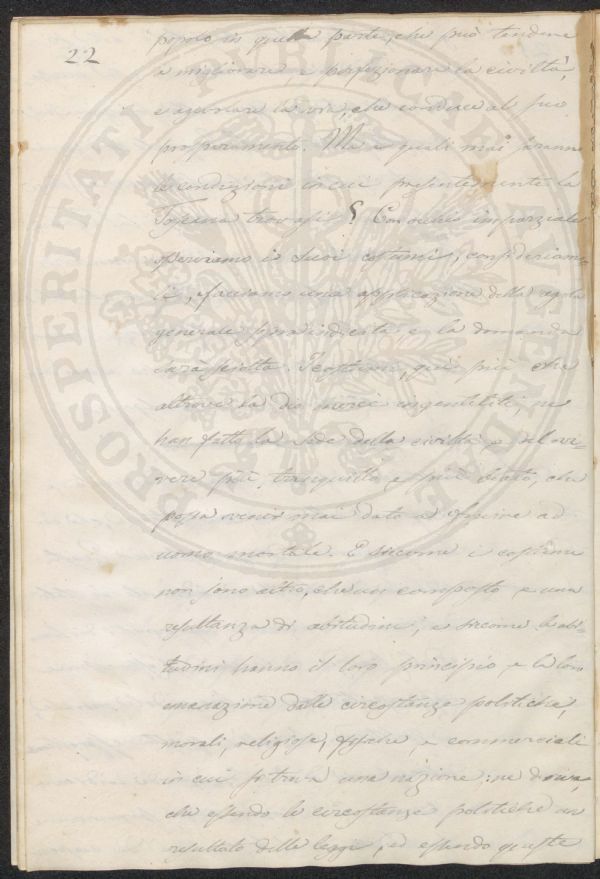 22
popolo in quella parte, che può tendere
a migliorare e perfezionare la civiltà,
e agevolare la via, che conduce al suo
prosperamento. Ma e quali mai saranno
le condizioni in cui presentemente la
Toscana trovasi? Con occhio imparziale
osserviamo i suoi costumi, consideriamo-
li, e facciamo una applicazione della regola
generale sopraindicata, e la domanda
sarà sciolta. I costumi, quì più che
altrove la dio mercè ingentiliti, ne
han fatto la sede della civiltà e del vi-
vere più tranquillo e più beato, che
possa venir mai dato a fruire ad
uomo mortale. E siccome i costumi
non sono altro, che un composto e una
resultanza di abitudini, e siccome le abi-
tudini hanno il loro principio e la loro
emanazione dalle circostanze politiche,
morali, religiose, fisiche, e commerciali
in cui si trova una nazione: ne deriva,
che essendo le circostanze politiche un
resultato delle leggi, ed essendo queste
PROSPERITATI PUBLICAE AUGENDAE